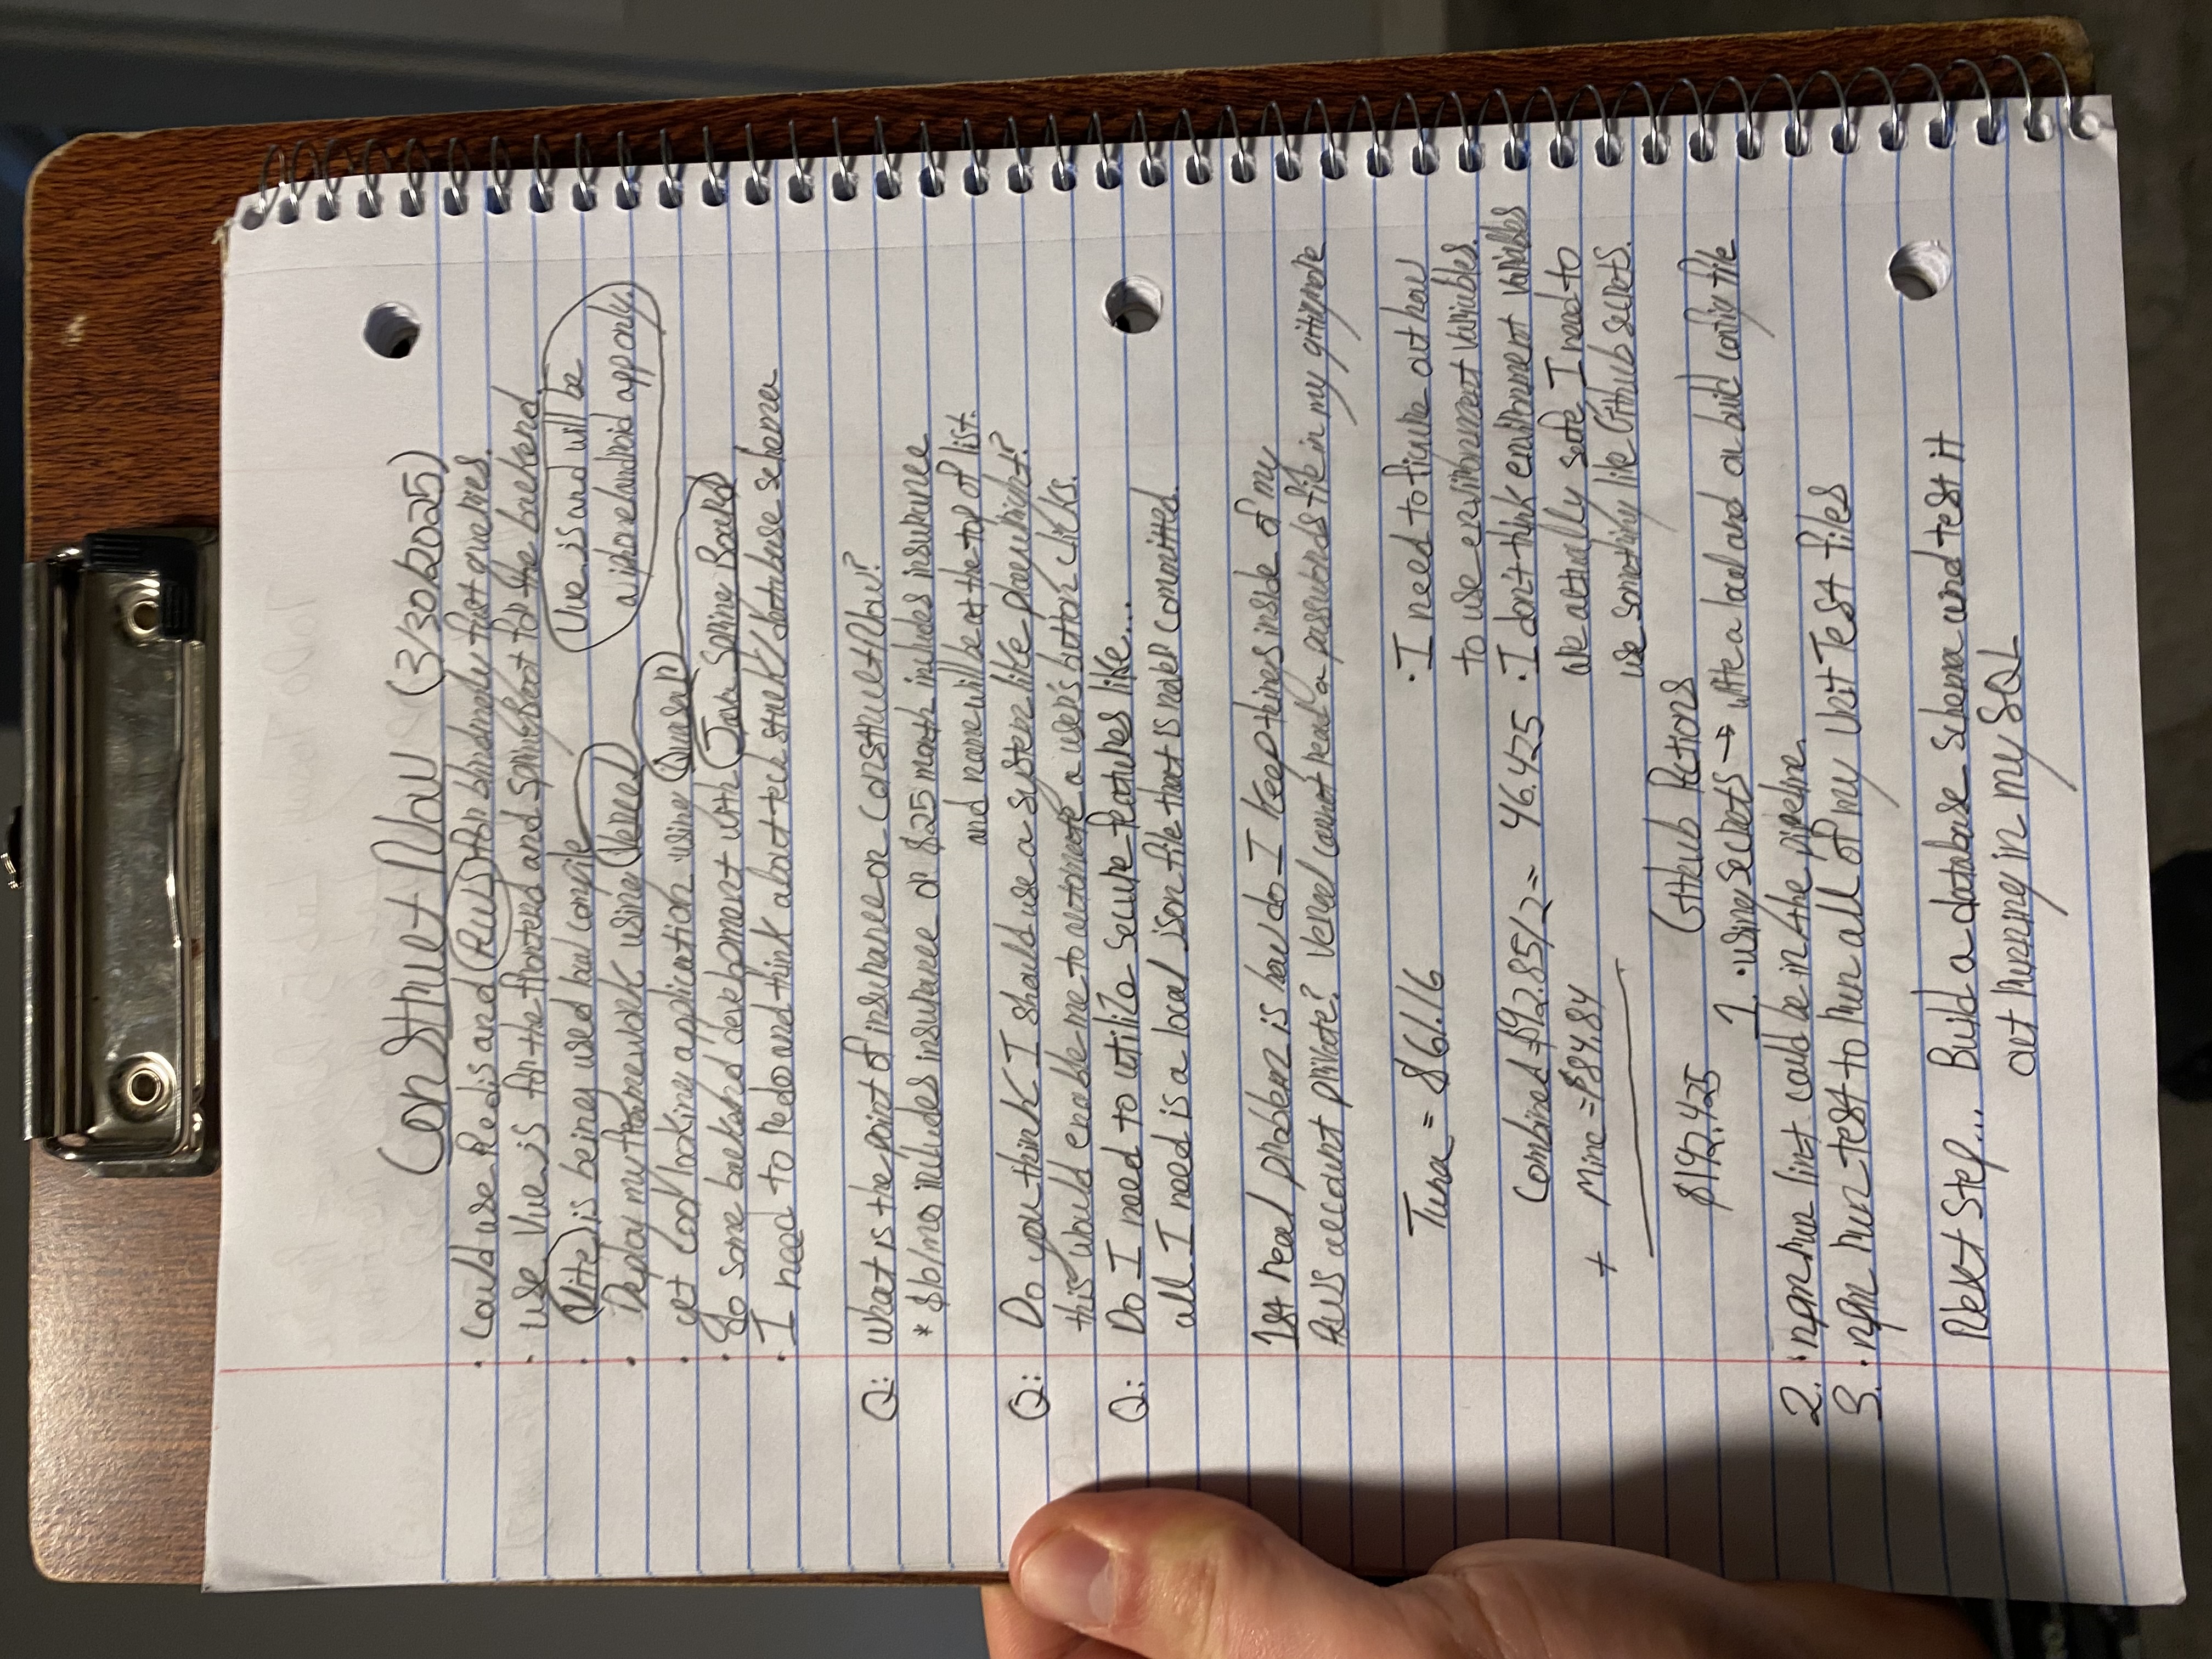 ConstructNow (3/30/2025)
• Could use Redis and AWS for blindingly fast queries.
• use Vue.js for the frontend and SpringBoot for the backend.
• Vite is being used to compile
Vue.js and will be
a iphone/android app only.
• Deploy my framework using Vercel
• get cool looking application using Quasar
• do some backend development with Java Spring Board
• I need to redo and think about tech stack/database schema
Q: What is the point of insurance on ConstructNow?
* $10/mo includes insurance or $25 month includes insurance
and name will be at the top of list.
Q: Do you think I should use a system like playwright?
this would enable me to automate a user's button clicks.
Q: Do I need to utilize secure features like...
all I need is a local json file that is never committed.
1st real problem is how do I keep things inside of my
AWS account private? Vercel cannot read a passwords file in my gitignore
Tuna = $61.16
• I need to figure out how
to use environment variables.
Combined = $92.85/2 = 46.425
• I don't think environment variables
are actually safe, I need to
use something like Github secrets.
+ Mine = $84.84
$192.425
Github Actions
1. • using secrets → write a local and on build config file
2. • npm run lint could be in the pipeline.
3. • npm run test to run all of my Unit Test files
Next Step... Build a database schema and test it
out running in my SQL